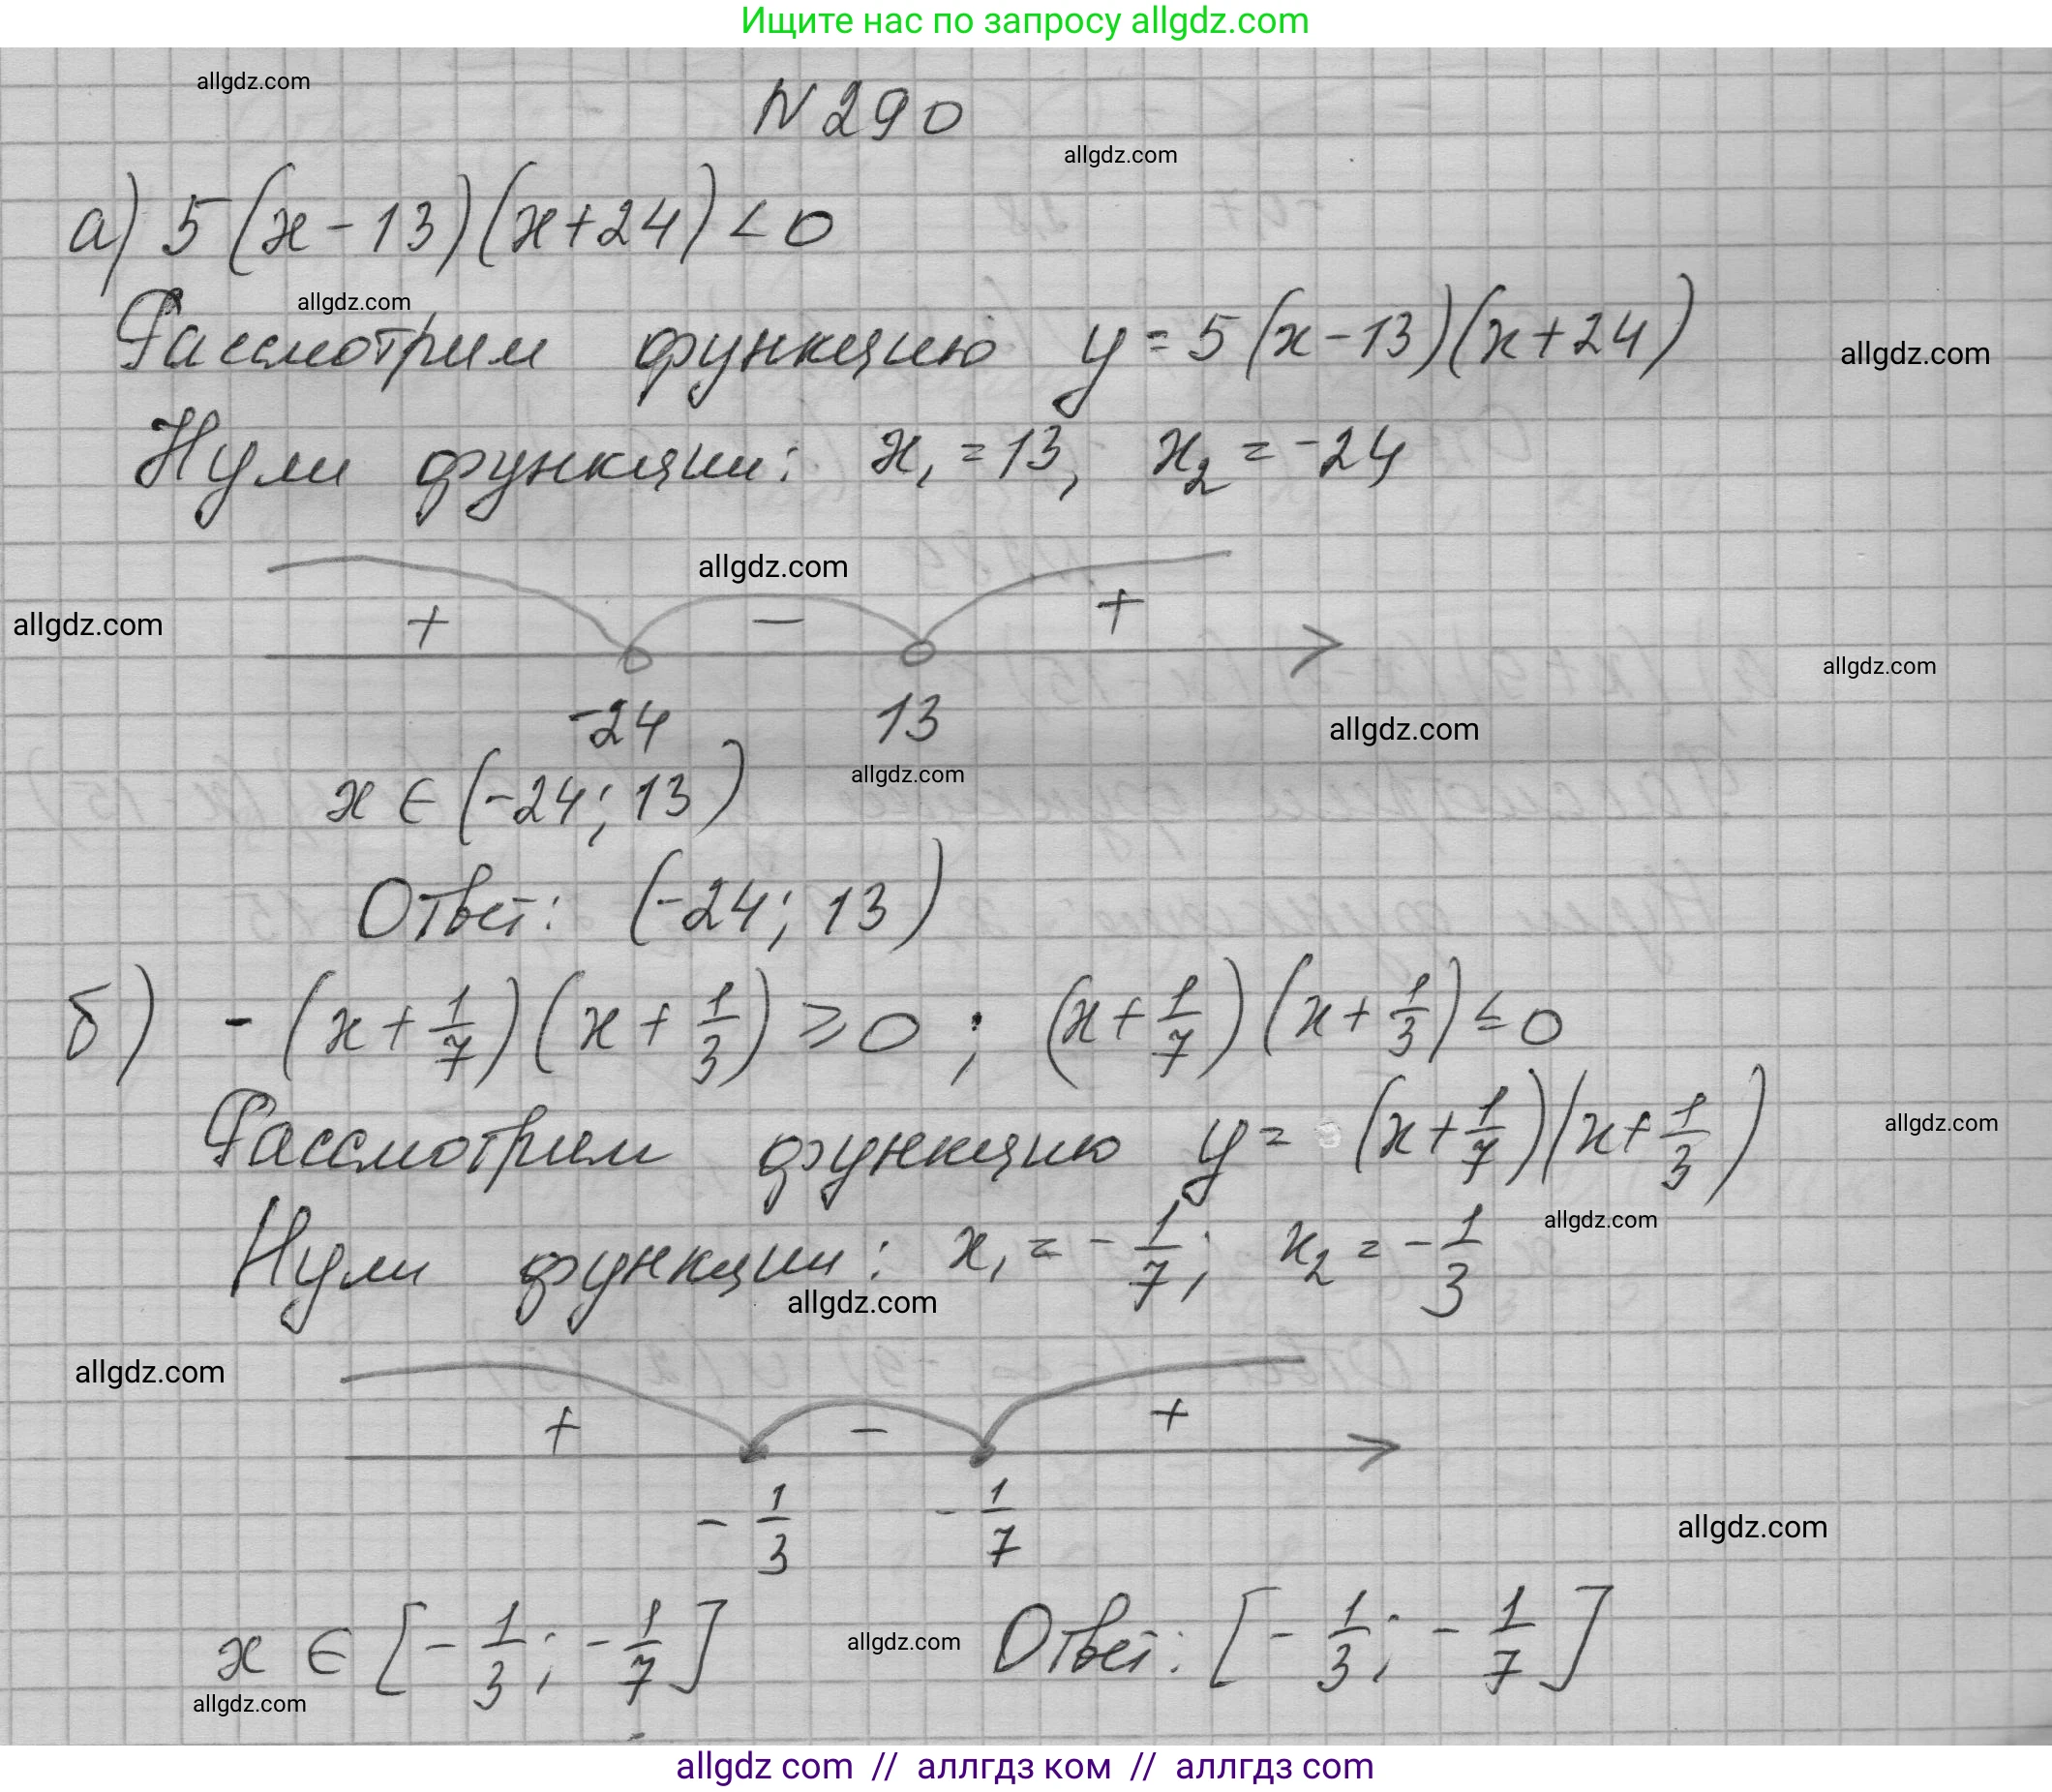 Ищите нас по запросу allgdz.com
allgdz.com
N 290
allgdz.com
а) 5(x-13)(x+24)<0
allgdz.com
Рассмотрим функцию y=5(x-13)(x+24)
allgdz.com
Нули функции: x₁=13, x₂=-24
allgdz.com
allgdz.com
+ − +
allgdz.com
-24 13
allgdz.com
allgdz.com
x ∈ (-24; 13)
Ответ: (-24; 13)
б) -(x+1/7)(x+1/3)≥0; (x+1/7)(x+1/3)≤0
Рассмотрим функцию y= (x+1/7)(x+1/3)
allgdz.com
allgdz.com
Нули функции: x₁=-1/7; x₂=-1/3
allgdz.com
allgdz.com
+ − +
-1/3 -1/7
allgdz.com
x ∈ [-1/3; -1/7] allgdz.com Ответ: [-1/3; -1/7]
allgdz.com
allgdz com // аллгдз ком // аллгдз com